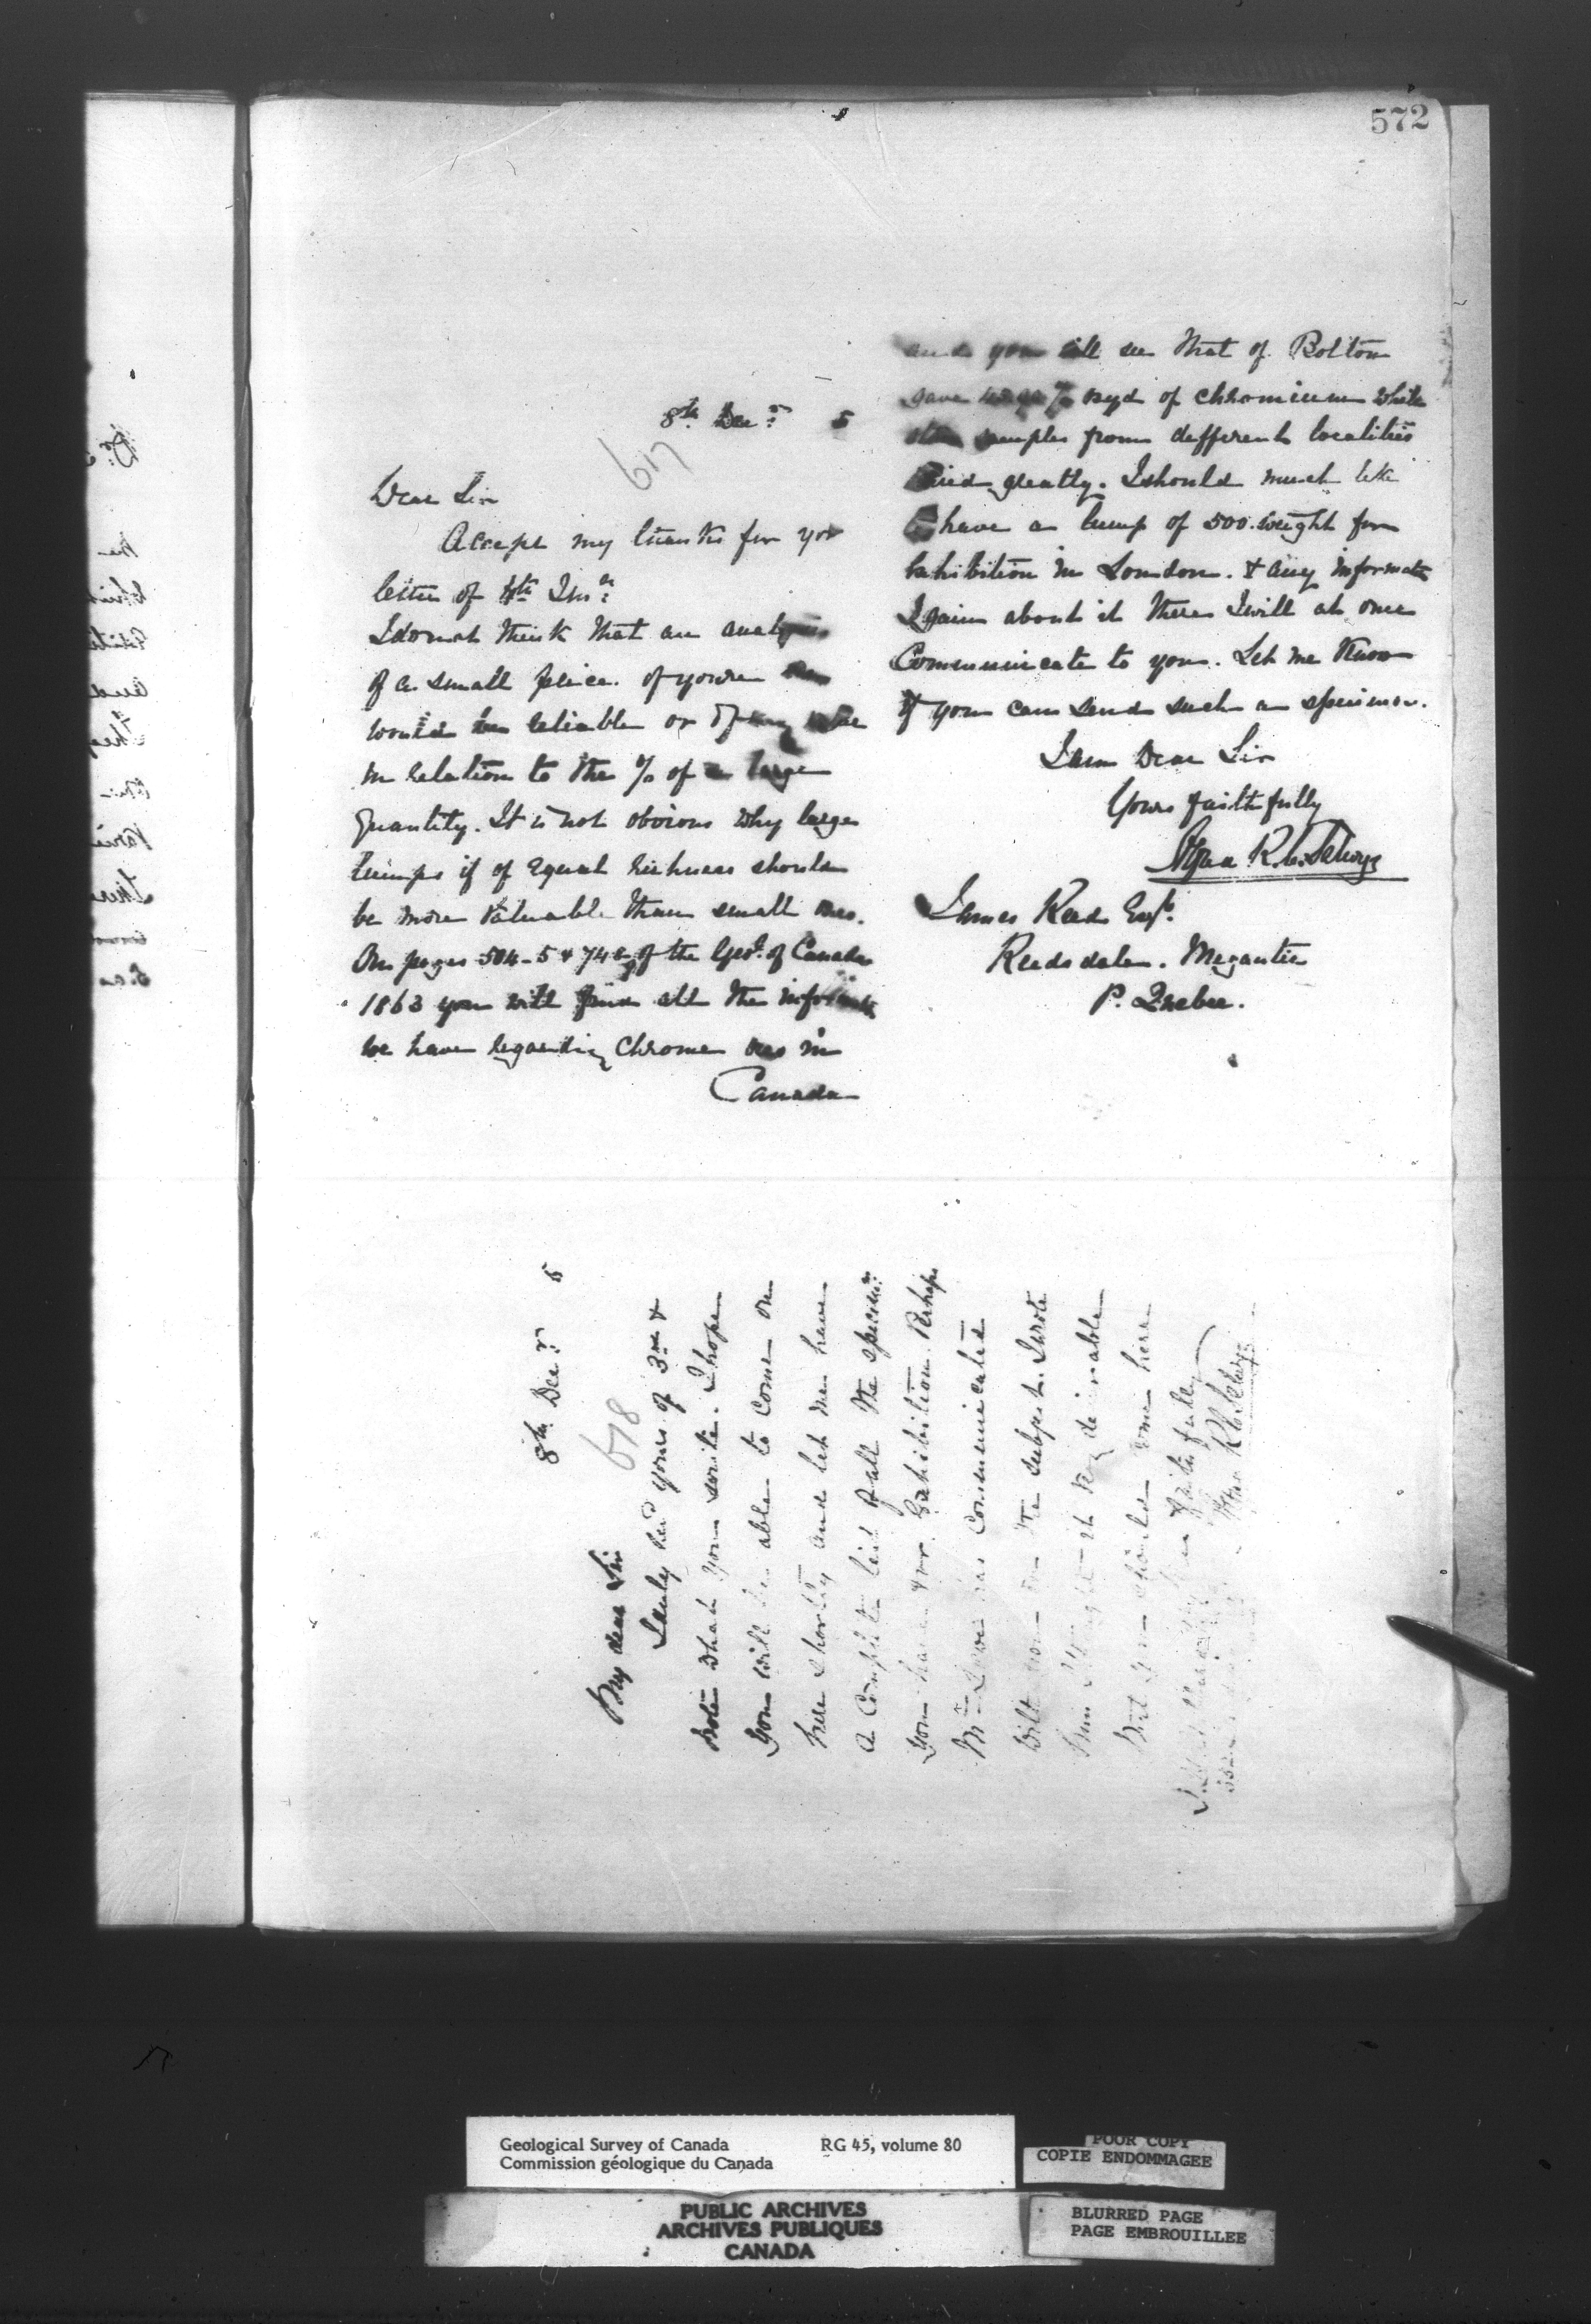 572
8th Decr 5
617
Dear Sir
Accept my thanks for your
letter of 4th Inst
I do not think that an analysis
of a small peice of your
would be reliable or of any value
in relation to the % of a large
quantity. It is not obvious why large
lumps if of equal richness should
be more valuable than small ones.
On pages 504-5 & 748 of the Geol. of Canada
1863 you will find all the information
we have regarding Chrome ores in
Canada
and you will see that of Bolton
gave % oxyd of chromium while
other samples from different localities
varied greatly. I should much like
to have a lump of 500. weight for
Exhibition in London. & any information
I gain about it there I will at once
Communicate to you. Let me know
if you can send such a specimen.
I am Dear Sir
Yours faithfully
Alfred R. C. Selwyn
James Reed Esqr.
Reedsdale. Megantic
P. Quebec.
8th Decr 5
618
My dear Sir
I duly recd yours of 3rd &
note what you write. I hope
you will be able to come on
here shortly and let me have
a complete list of all the specimns
you have for Exhibition. Perhaps
Mr Lowe has communicated
with you on the subject. I wrote
him I thought it very desirable
that you should come here
faithfully
Alfred R C Selwyn
Geological Survey of Canada RG 45, volume 80
Commission géologique du Canada
POOR COPY
COPIE ENDOMMAGEE
PUBLIC ARCHIVES
ARCHIVES PUBLIQUES
CANADA
BLURRED PAGE
PAGE EMBROUILLEE